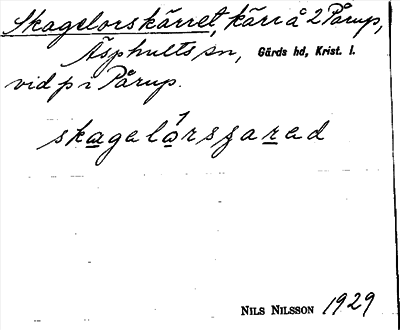 Skagelorskärret, kärr å 2 Pårup,
Äsphults sn, Gärds hd, Krist. l.
vid p i Pårup.
skagelårsʒarad
NILS NILSSON 1929